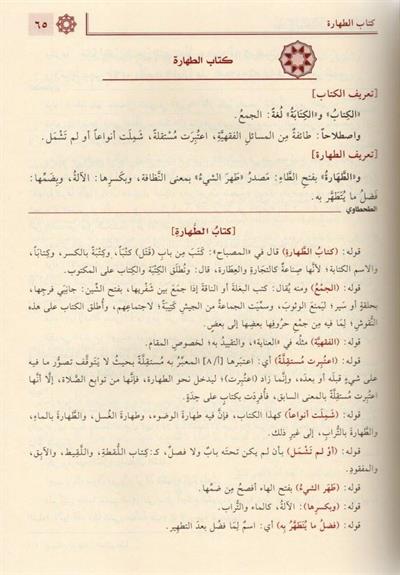 كتاب الطهارة
٦٥
كتاب الطهارة
[تعريف الكتاب]
«الكِتابُ» و«الكِتَابَةُ» لُغةً: الجمعُ.
واصطلاحاً: طائفةٌ مِن المسائلِ الفقهيَّةِ، اعتُبِرَت مُسْتقلةً، شَمِلَت أنواعاً أو لم تَشْمَل.
[تعريف الطهارة]
و«الطَّهارةُ» بفتحِ الطَّاءِ: مَصدرُ «طَهَرَ الشيءُ» بمعنى النَّظافة، وبكَسرِها: الآلةُ، وبِضَمِّها:
فَضلُ ما يُتَطَهَّر به.
الطحطاوي
[كتابُ الطَّهارةِ]
قوله: (كتابُ الطَّهارةِ) قال في «المصباح»: كَتَبَ مِن بابِ (قَتَل) كَتْباً، وكِتْبَةً بالكسرِ، وكِتاباً،
والاسم الكتابة؛ لأنَّها صِناعةٌ كالنجارة والعِطارة، قال: وتُطلَق الكِتْبَة والكِتاب على المكتوب.
قوله: (الجَمْعُ) ومنه يُقال: كتب البغلةَ أو الناقةَ إذا جَمَعَ بينَ شُفْرَيها، بفتح الشّين: جانِبَي فرجِها،
بحلقةٍ أو سَيرٍ؛ ليَمنعَ الوثوبَ، وسمِّيَت الجماعةُ من الجيشِ كَتِيبَةً؛ لاجتماعِهم، وأُطلق الكتاب على هذه
النُّقوشِ؛ لِمَا فيه مِن جمْعِ حُروفِها بعضِها إلى بعضٍ.
قوله: (الفقهيَّة) مثلُه في «العناية»، والتقييدُ به؛ لخصوصِ المقام.
قوله: (اعتُبِرت مُستقِلَّةً) أي: اعتبَرَها [٨/أ] المعبِّرُ به مستقِلَّةً بحيثُ لا يَتوقَّف تصوُّر ما فيه
على شيءٍ قبلَه أو بعدَه، وإنَّما زاد (اعتُبِرت)؛ ليدخل نحو الطهارة، فإنَّها من توابعِ الصَّلاة، إلَّا أنَّها
اعتُبرت مُستقِلَّةً بالمعنى السابق، فأُفرِدَت بكتابٍ على حِدَةٍ.
قوله: (شَمِلَت أنواعاً) كهذا الكتاب، فإنَّ فيه طهارةَ الوضوء، وطهارةَ الغُسل، والطَّهارةَ بالماءِ،
والطَّهارةَ بالتُّرابِ، إلى غيرِ ذلك.
قوله: (أوْ لم تَشْمَل) بأن لم يكن تحتَه بابٌ ولا فصلٌ، كـ: كتابِ اللُّقطةِ، واللَّقيطِ، والآبقِ،
والمفقودِ.
قوله: (طَهَرَ الشيءُ) بفتح الهاء أفصحُ مِن ضمِّها.
قوله: (وبكسرِها): الآلةُ، كالماءِ والتُّرابِ.
قوله: (فضلُ ما يُتطهَّرُ به) أي: اسمٌ لِمَا فضَلَ بعدَ التطهيرِ.